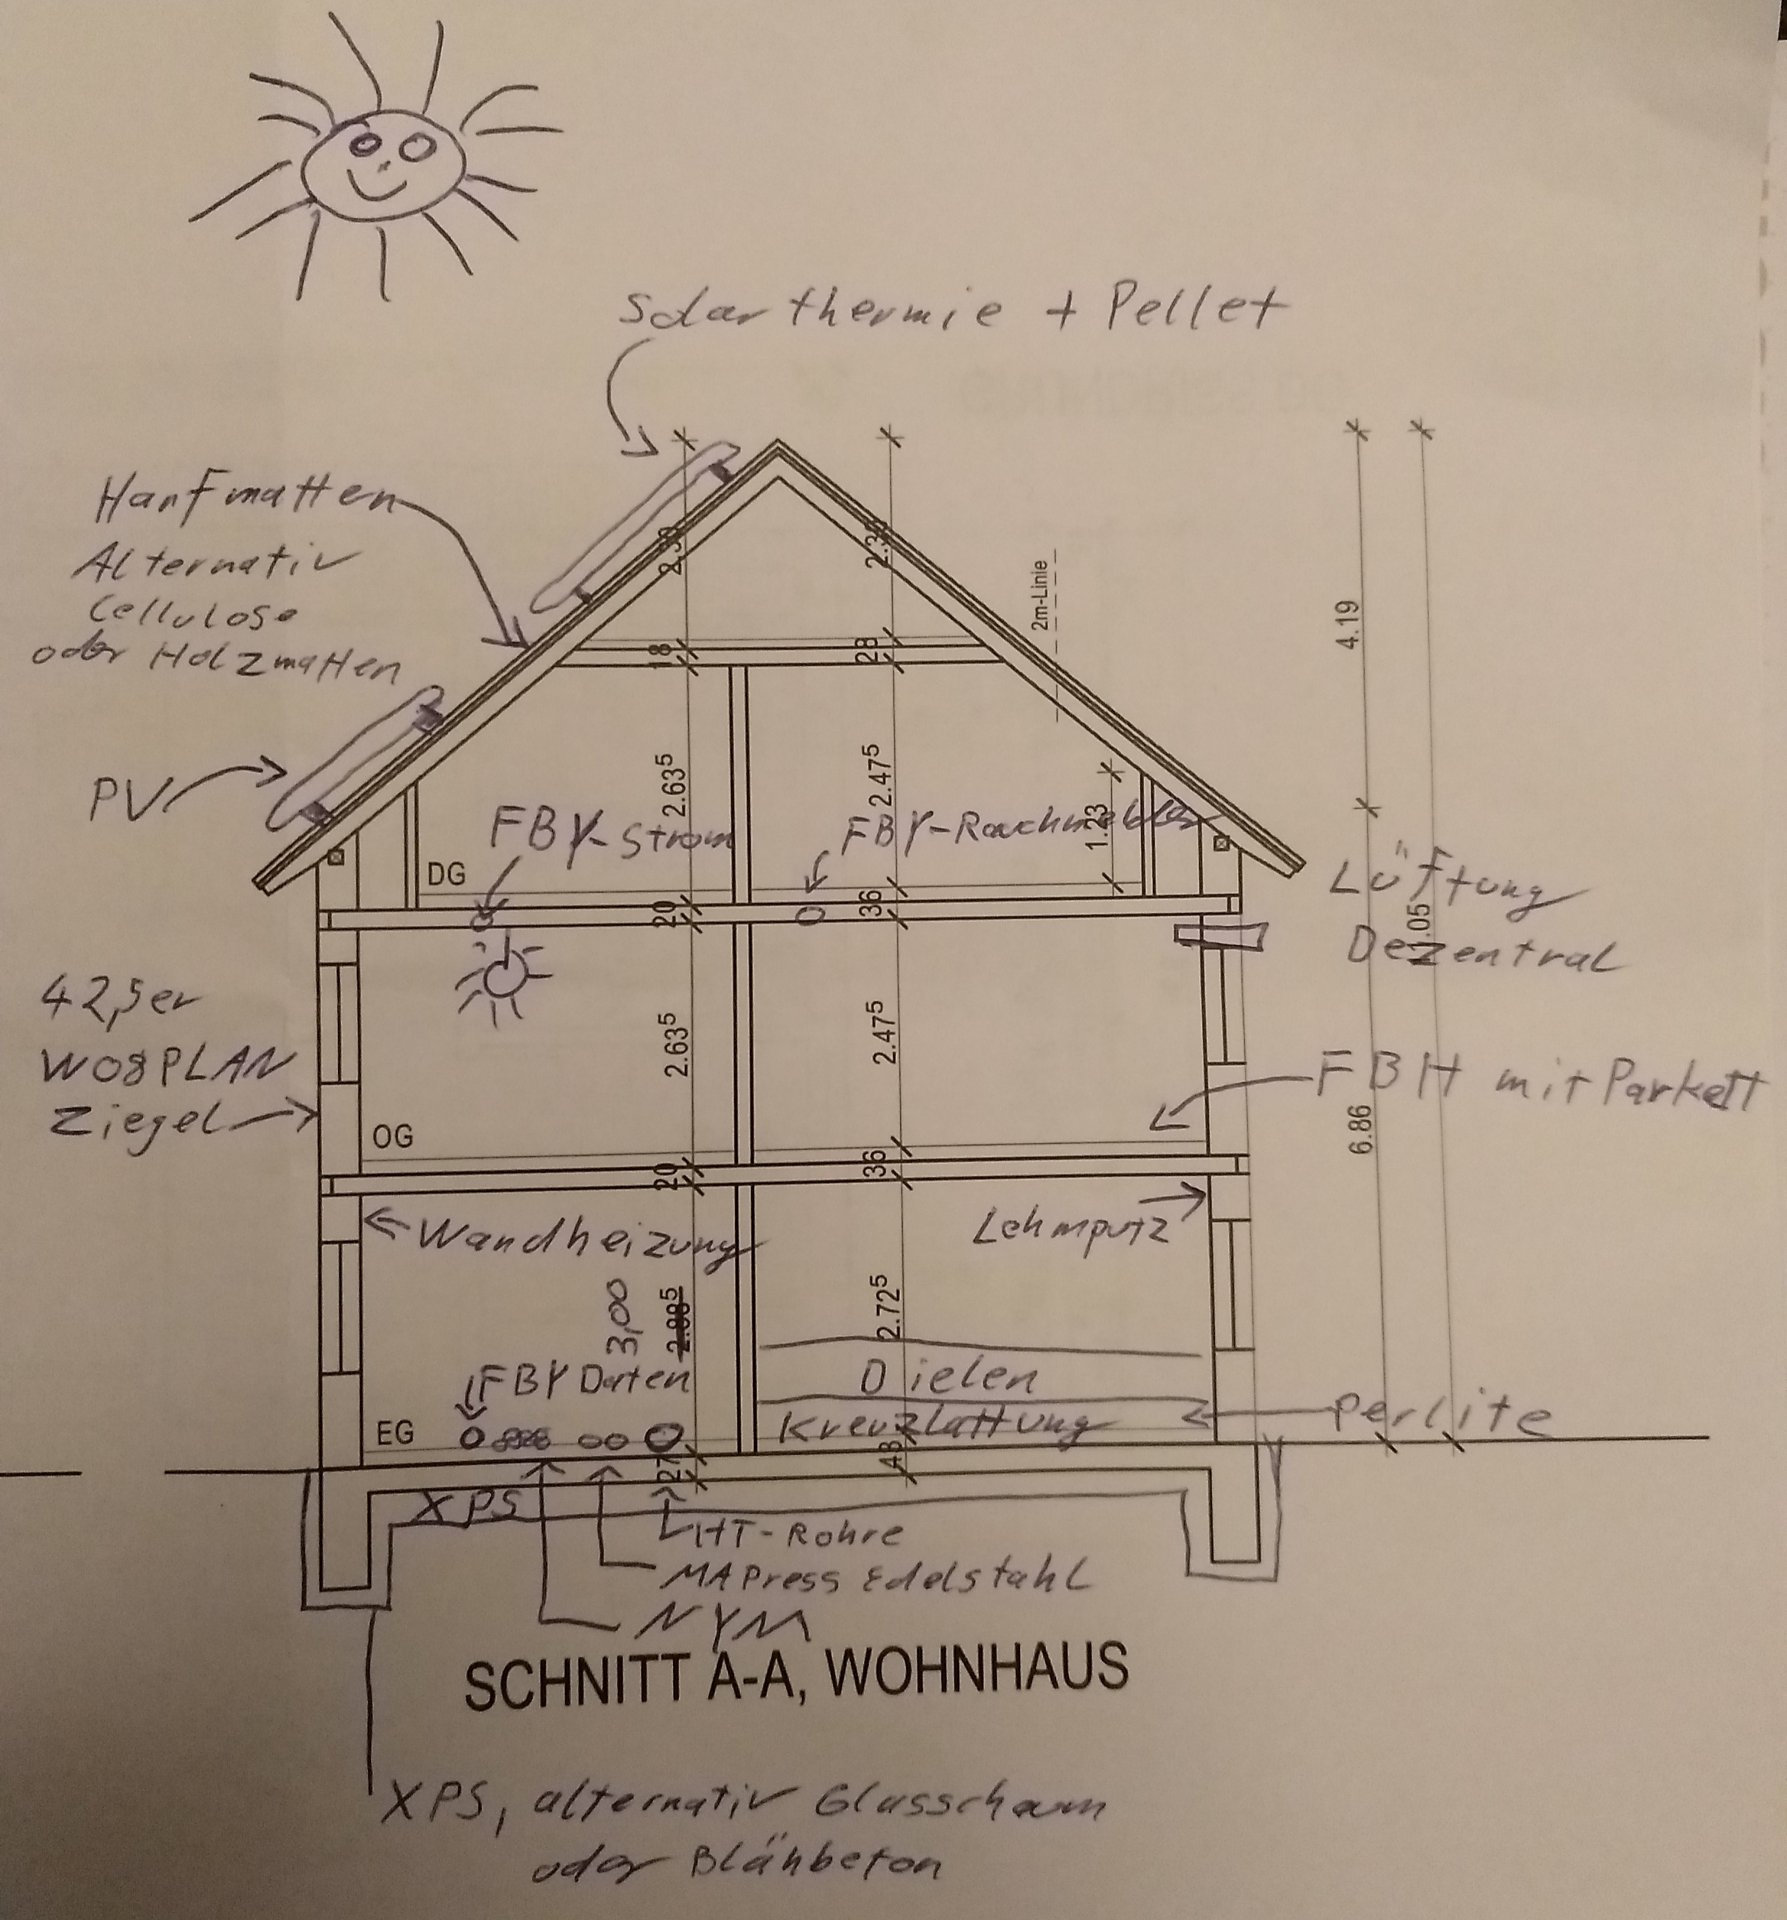 Solarthermie + Pellet
Hanfmatten
Alternativ
Cellulose
oder Holzmatten
PV
2.39
2.39
2m-Linie
4.19
18
28
2.63⁵
2.47⁵
1.23
FBY-Strom
FBY-Rauchmelder
DG
20
36
Lüftung
Dezentral
42,5er
W08PLAN
Ziegel
2.63⁵
2.47⁵
FBH mit Parkett
6.86
OG
20
36
Wandheizung
Lehmputz
3,00
2.88⁵
2.72⁵
FBY Daten
Dielen
Kreuzlattung
Perlite
EG
27
48
XPS
HT-Rohre
MAPress Edelstahl
NYM
SCHNITT A-A, WOHNHAUS
XPS, alternativ Glasschaum
oder Blähbeton